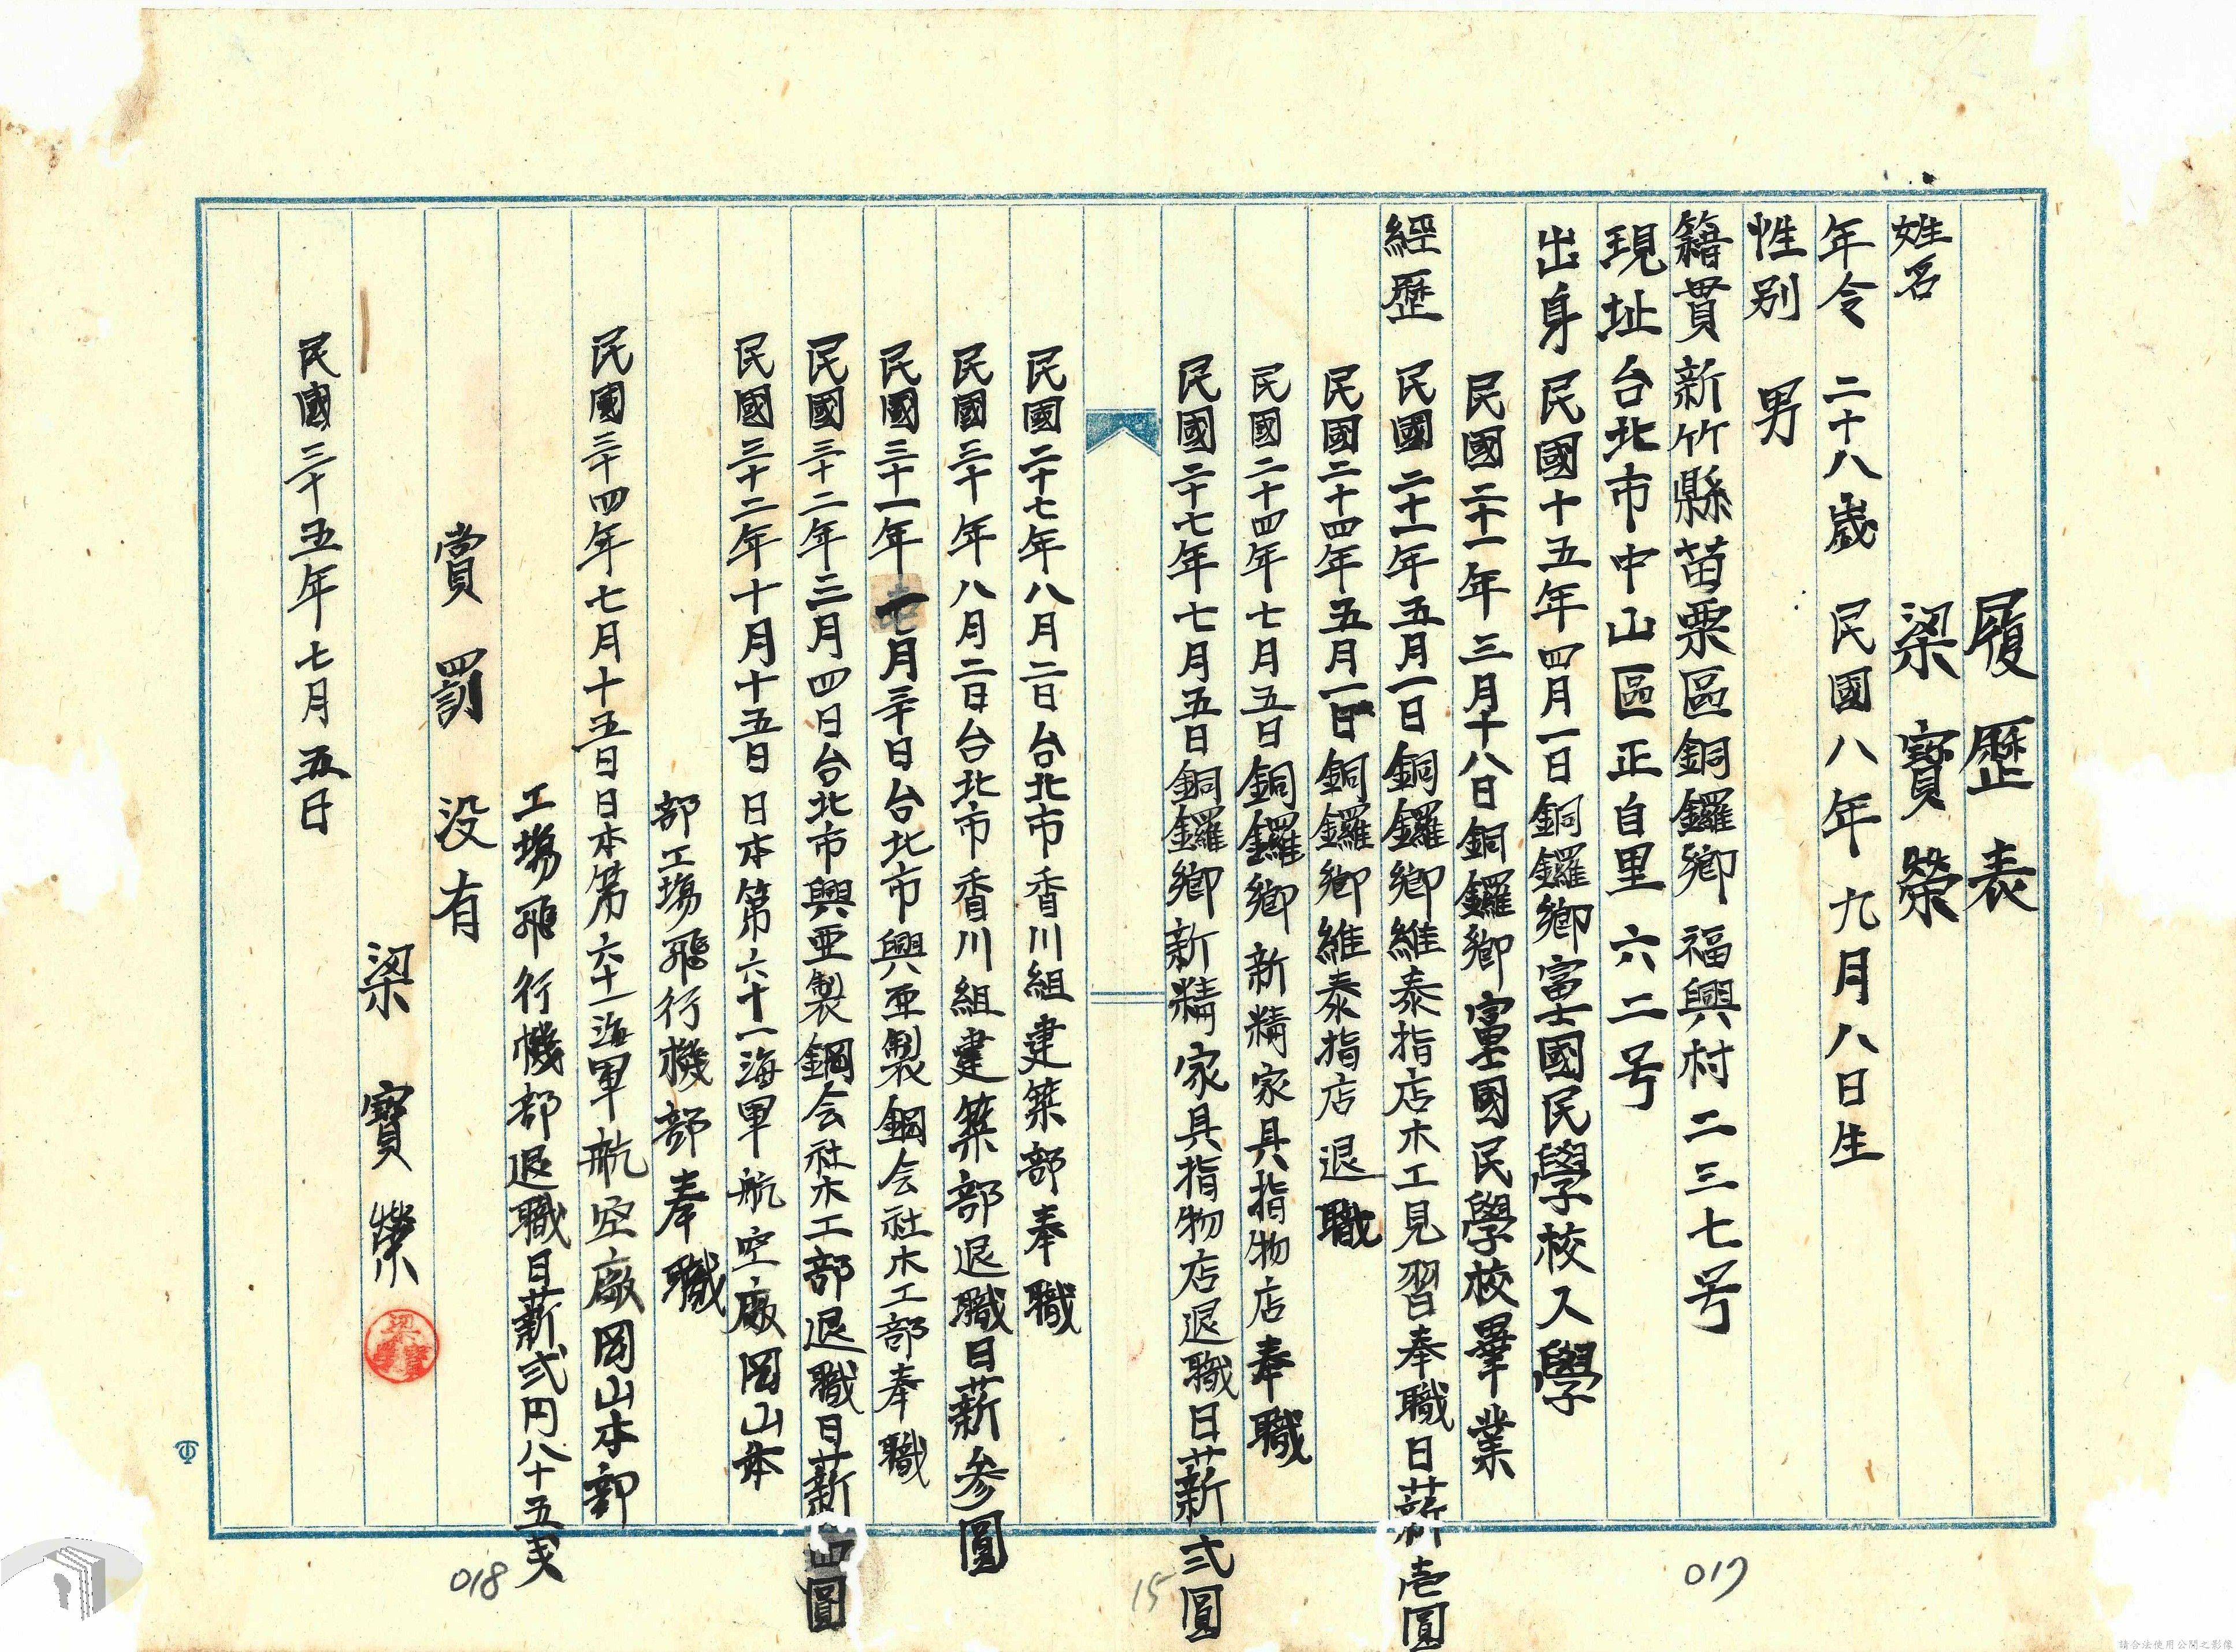 履歷表
姓名 梁寶榮
年令 二十八歲 民國八年九月八日生
性別 男
籍貫 新竹縣苗栗區銅鑼鄉福興村二三七号
現址 台北市中山區正自里六二号
出身 民國十五年四月一日銅鑼鄉富士國民學校入學
民國二十一年三月十八日銅鑼鄉富士國民學校畢業
經歷 民國二十一年五月一日銅鑼鄉維泰指店木工見習奉職日薪壱圓
民國二十四年五月一日銅鑼鄉維泰指店退職
民國二十四年七月五日銅鑼鄉新精家具指物店奉職
民國二十七年七月五日銅鑼鄉新精家具指物店退職日薪弍圓
民國二十七年八月二日台北市香川組建築部奉職
民國三十年八月二日台北市香川組建築部退職日薪参圓
民國三十一年月三十日台北市興亜製鋼会社木工部奉職
民國三十二年三月四日台北市興亜製鋼会社木工部退職日薪四圓
民國三十二年十月十五日日本第六十一海軍航空廠岡山本
部工場飛行機部奉職
民國三十四年七月十五日日本第六十一海軍航空廠岡山本部
工場飛行機部退職日薪弍円八十五戔
賞罰没有
梁寶榮
民國三十五年七月五日
017
15
018
請合法使用公開之影像